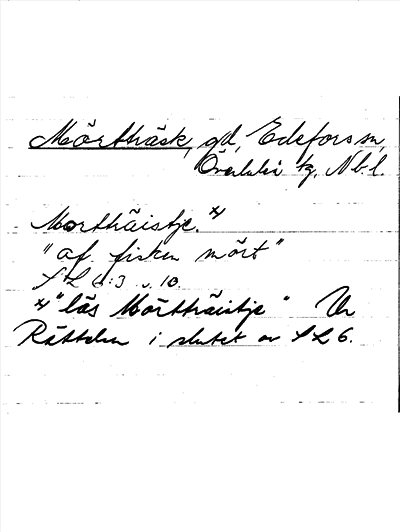 Mörtträsk, gd, Edefors sn,
Överluleå tg, Nb. l.
Mortträistje. x)
"af fisken mört"
S L 6:3 s. 10.
x) "läs Mörtträistje" Ur
Rättelser i slutet av S L 6.